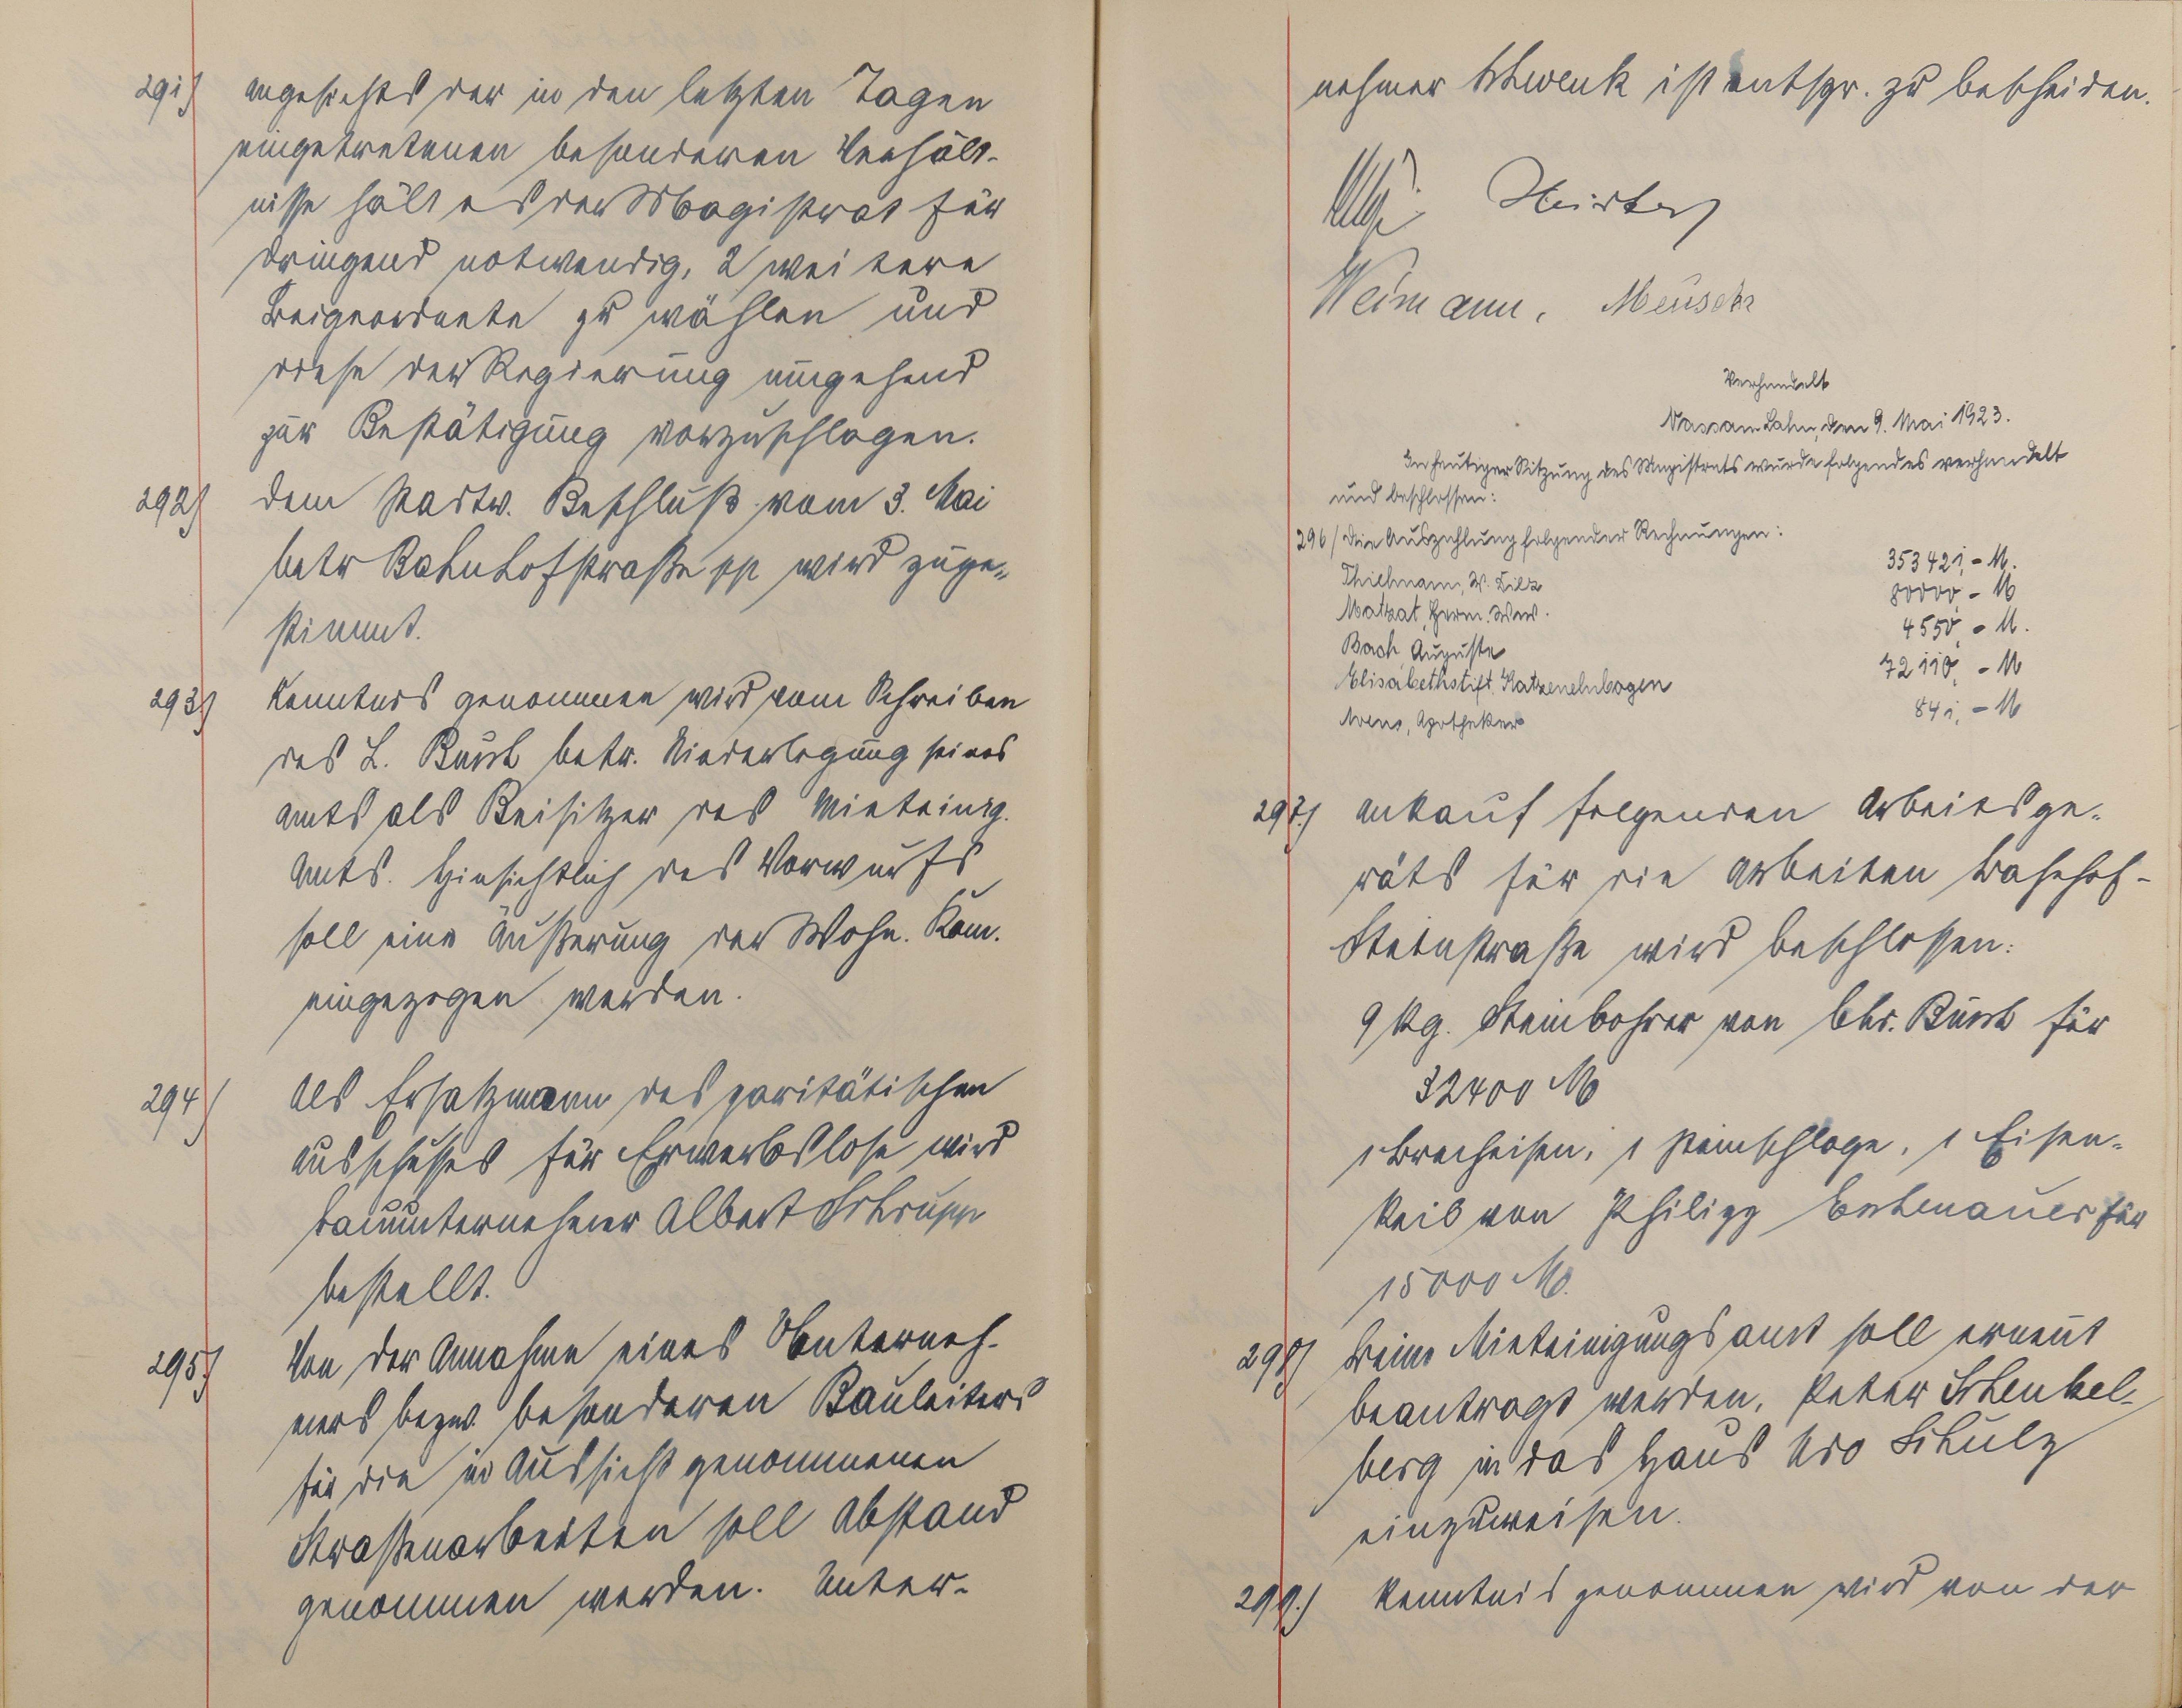 291) angesichts der in den letzten Tagen
eingetretenen besonderen Verhält-
nisse hält es der Magistrat für
dringend notwendig, 2 weitere
Beigeordnete zu wählen und
diese der Regierung umgehend
zur Bestätigung vorzuschlagen.
292) dem Stadtv. Beschluß vom 3. Mai
betr Bahnhofstraße pp wird zuge-
stimmt.
293) Kenntnis genommen wird vom Schreiben
des L. Busch betr. Niederlegung seines
Amts als Beisitzer des Mieteinig.
Amts. Hinsichtlich des Vorwurfs
soll eine Äußerung der Wohn. Kom.
eingezogen werden.
294) Als Ersatzmann des paritätischen
Ausschusses für Erwerbslose wird
Bauunternehmer Albert Schrupp
bestellt.
295) Von der Annahme eines Unterneh-
mers bezw. besonderen Bauleiters
für die in Aussicht genommenen
Straßenarbeiten soll Abstand
genommen werden. Unter-
nehmer Schwenk ist entspr. zu bescheiden.
Weimann, Meusch
Verhandelt
Nassau Lahn, den 9. Mai 1923.
In heutiger Sitzung des Magistrats wurde folgendes verhandelt
und beschlossen:
296/ Die Auszahlung folgender Rechnungen:
Thielmann, W. Bilz 353421,- M.
Matzat, Herm. Wwe. 80000,- M
Bach Auguste 4550,- M.
Elisabethstift, Katzenelnbogen 72110,- M
Arens, Apotheker 841,- M
297.) Ankauf folgenden Arbeitsge-
räts für die Arbeiten Bahnhof-
Steinstraße wird beschlossen:
9 kg. Steinbohrer von Chr. Busch für
32400 M
1 Brecheisen, 1 Steinschlage, 1 Eisen-
keil von Philipp für
15000 M.
298) Beim Mieteinigungsamt soll erneut
beantragt werden, Peter Schenkel-
berg in das Haus Udo Schulz
einzuweisen.
299.) Kenntnis genommen wird von der